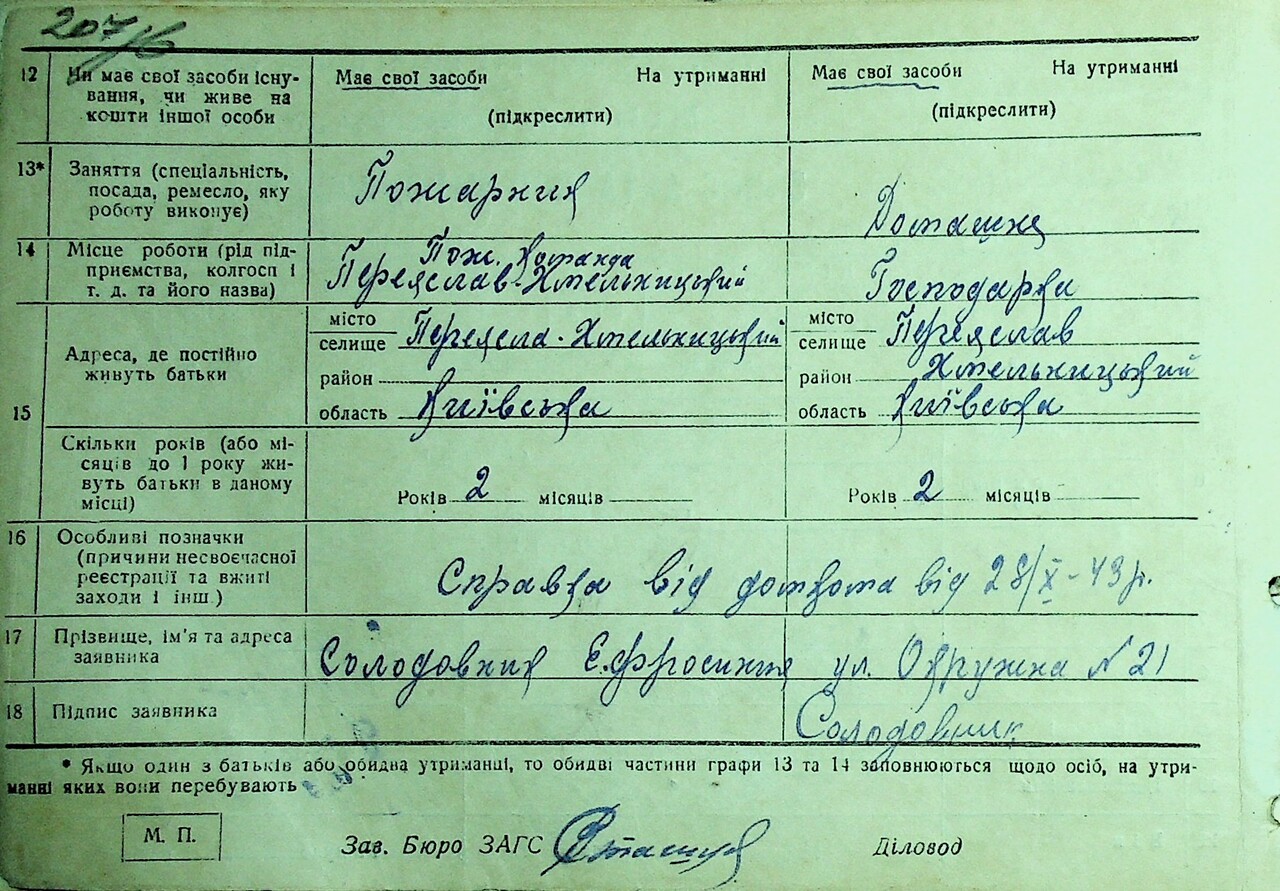 207/6
12 Чи має свої засоби існу-
вання, чи живе на
кошти іншої особи
Має свої засоби На утриманні
(підкреслити)
Має свої засоби На утриманні
(підкреслити)
13* Заняття (спеціальність,
посада, ремесло, яку
роботу виконує)
Пожарник
Домашнє
14 Місце роботи (рід під-
приємства, колгосп і
т. д. та його назва)
Пож. Команда
Переяслав-Хмельницький
Господарка
15 Адреса, де постійно
живуть батьки
місто
селище Переясла-Хмельницький
район
область Київська
місто
селище Переяслав
район Хмельницький
область Київська
Скільки років (або мі-
сяців до 1 року жи-
вуть батьки в даному
місці)
Років 2 місяців
Років 2 місяців
16 Особливі позначки
(причини несвоєчасної
реєстрації та вжиті
заходи і інш.)
Справка від домкома від 28/X-43 р.
17 Прізвище, ім'я та адреса
заявника
Солодовник Е.фросиния ул. Окружна N 21
18 Підпис заявника
Солодовник
* Якщо один з батьків або обидва утриманці, то обидві частини графи 13 та 14 заповнюються щодо осіб, на утри-
манні яких вони перебувають
М. П.
Зав. Бюро ЗАГС
Діловод